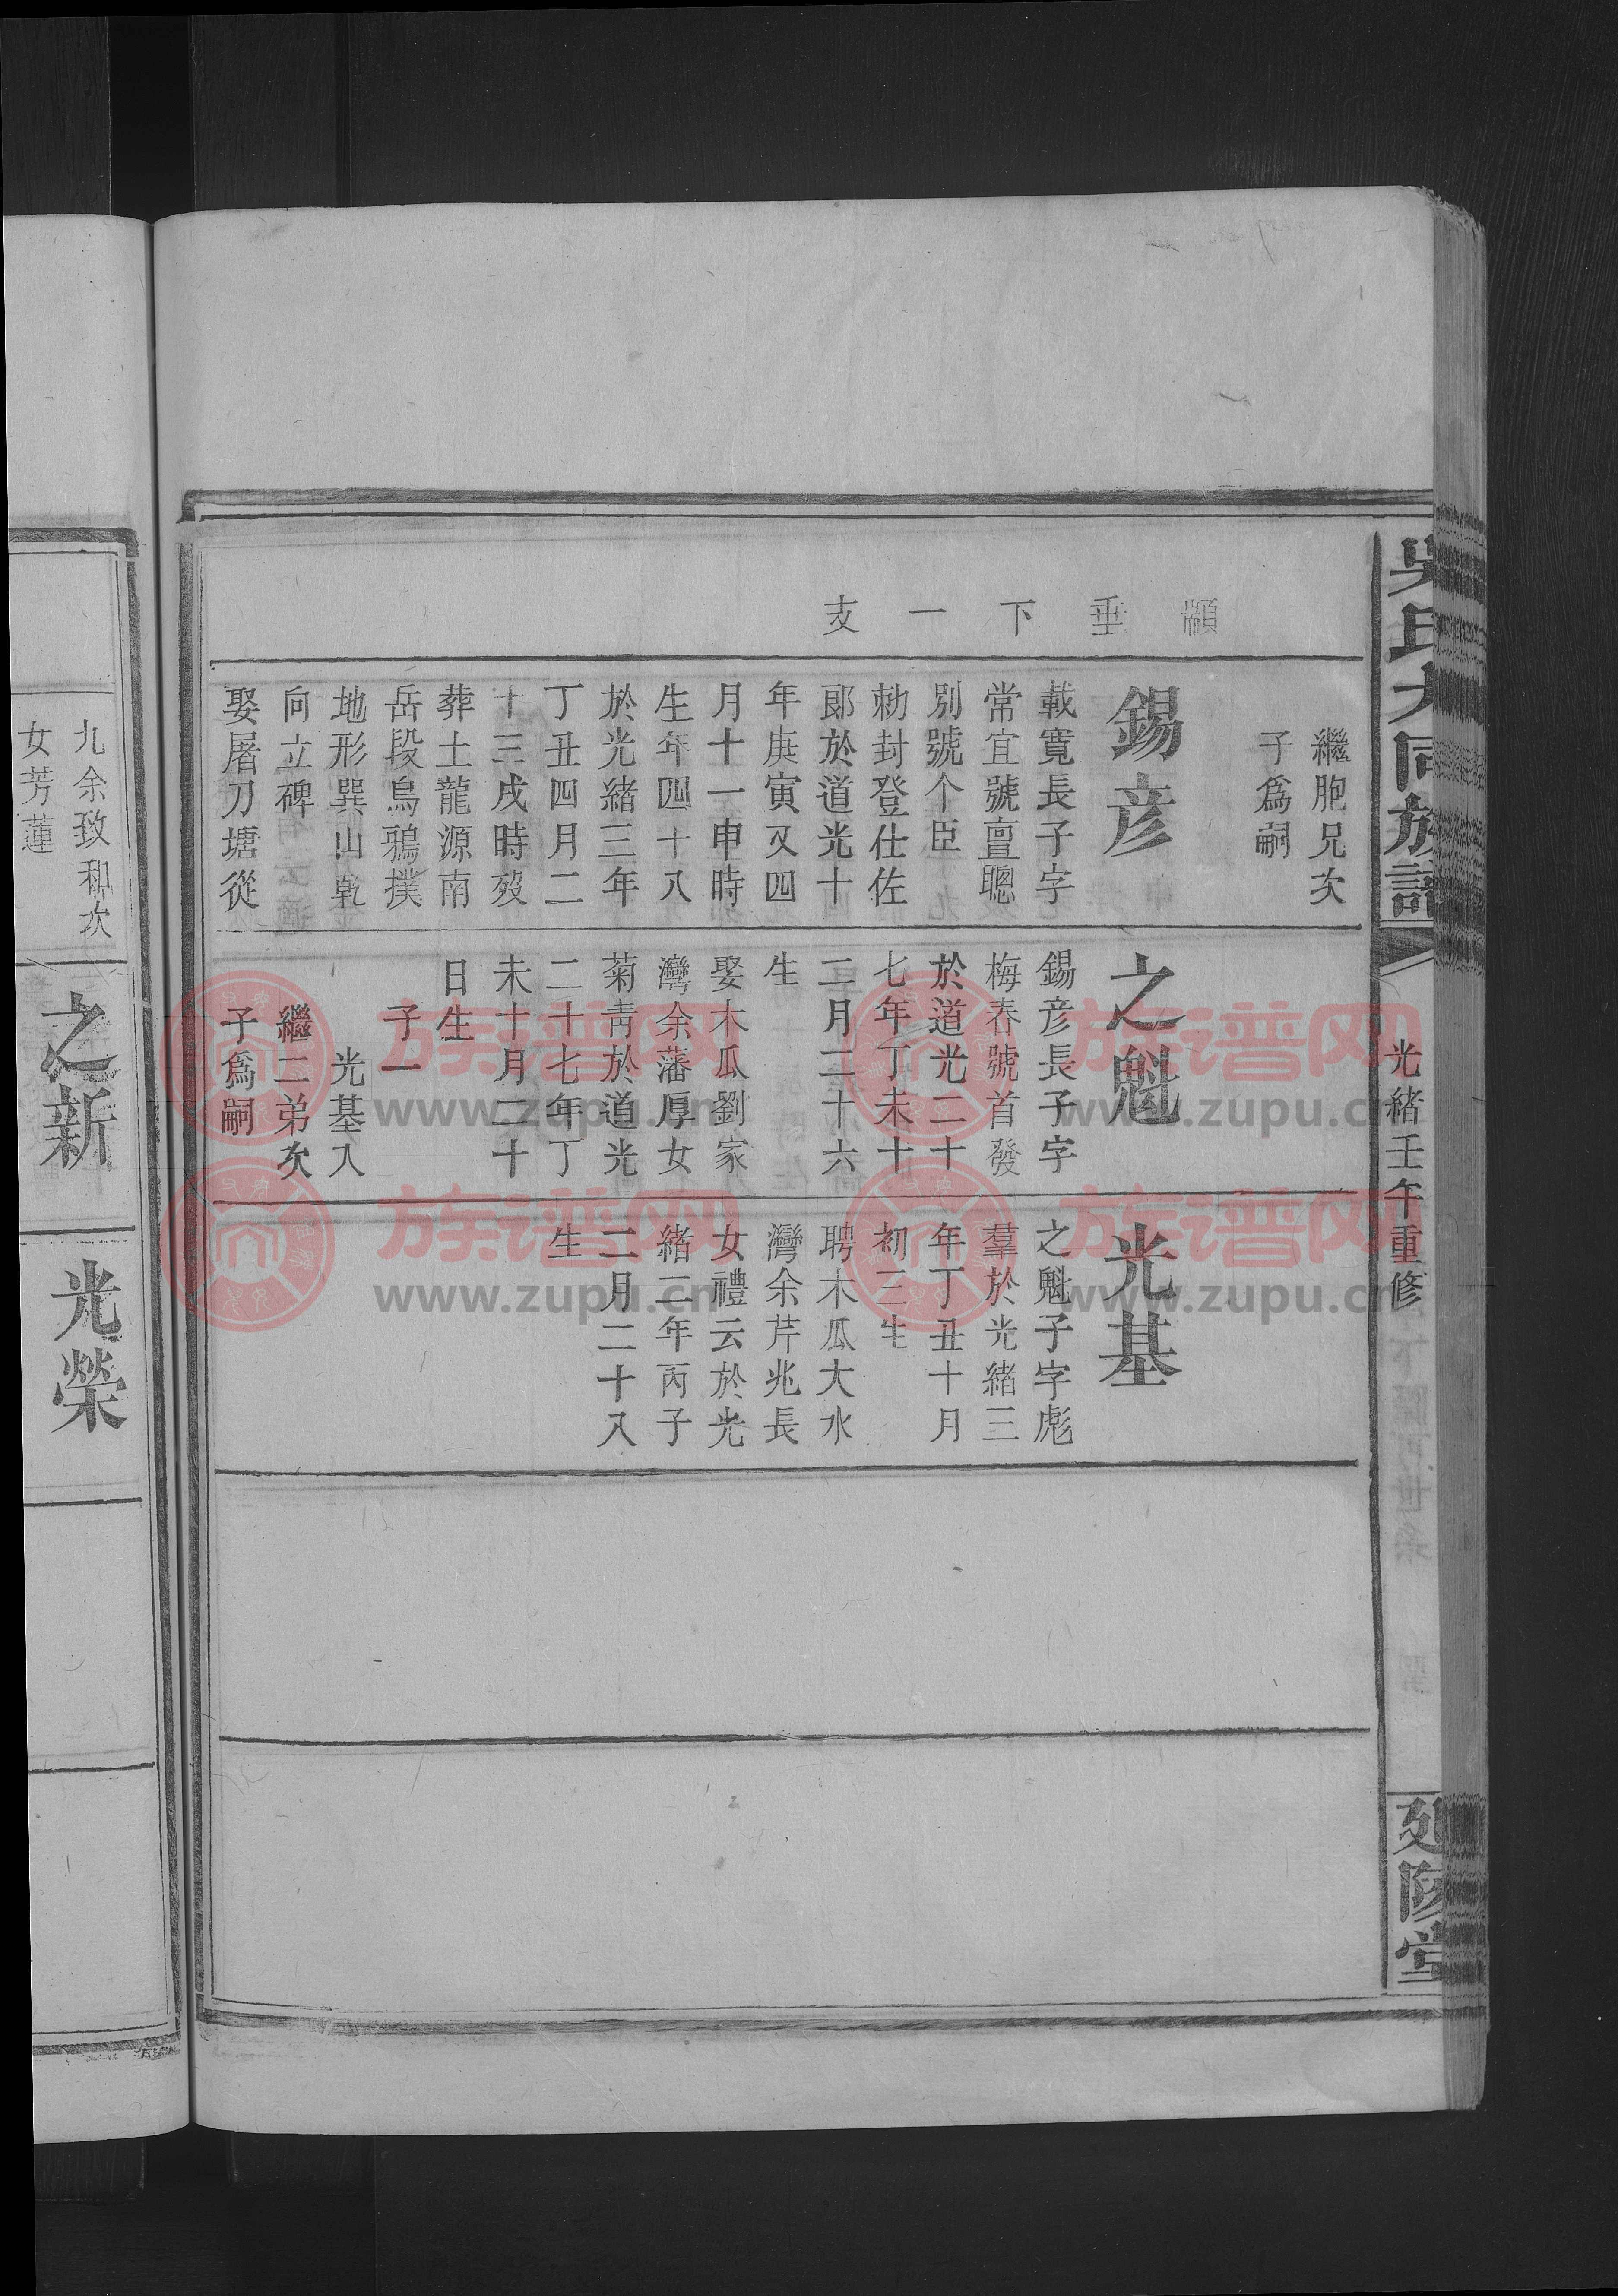 吳氏大同族譜
光緒壬午重修
延陵堂
顓垂下一支
繼胞兄次
子爲嗣
錫彦
載寬長子字
常宜號亶聰
別號个臣
勅封登仕佐
郎於道光十
年庚寅又四
月十一申時
生年四十八
於光緒三年
丁丑四月二
十三戌時歿
葬土龍源南
岳段烏鴉撲
地形巽山乾
向立碑
娶屠刀塘從
之魁
錫彦長子字
梅春號首發
於道光二十
七年丁未十
二月二十六
生
娶木瓜劉家
灣余藩厚女
菊靑於道光
二十七年丁
未十月二十
日生
子一
光基入
繼二弟次
子爲嗣
光基
之魁子字彪
羣於光緒三
年丁丑十月
初三生
聘木瓜大水
灣余芹兆長
女禮云於光
緒二年丙子
二月二十八
生
九余致和次
女芳蓮
之新
光榮
族谱网
www.zupu.cn
族谱网
www.zupu.cn
族谱网
www.zupu.cn
族谱网
www.zupu.cn